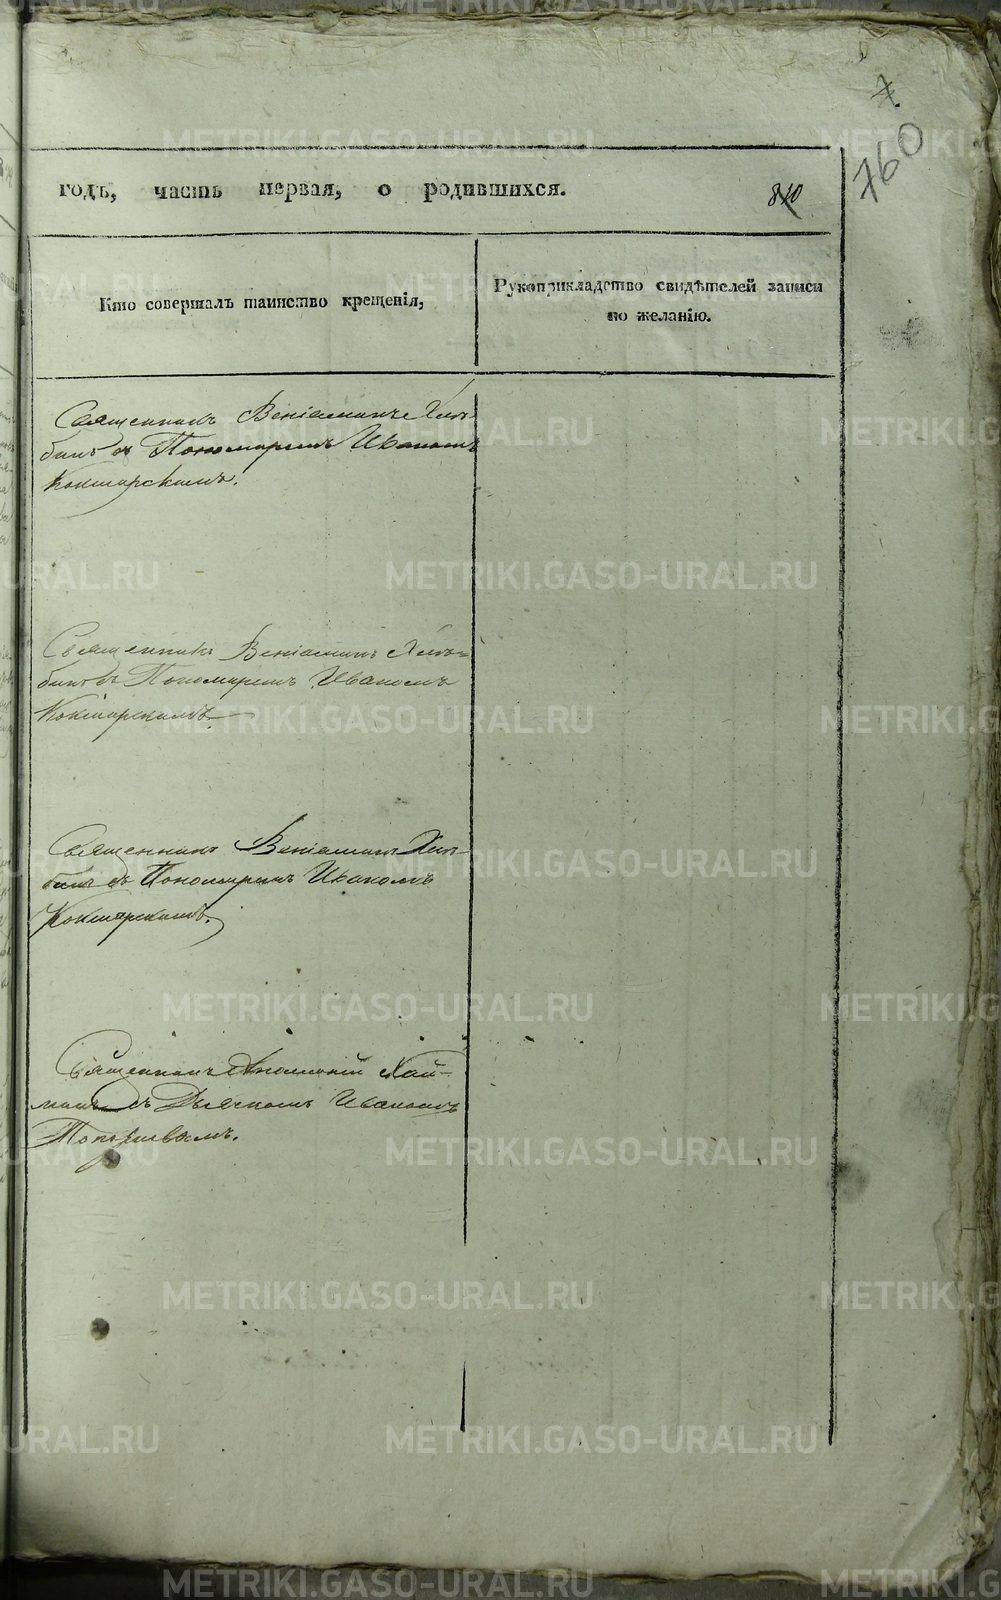 7
760
годъ, часть первая, о родившихся. 810
Кто совершалъ таинство крещенія,
Рукоприкладство свидѣтелей записи
по желанію.
Священникъ Веніаминъ Хлѣ-
бинъ съ Пономаремъ Иваномъ
Кокшарскимъ.
Священникъ Веніаминъ Хлѣ-
бинъ съ Пономаремъ Иваномъ
Кокшарскимъ
Священникъ Веніаминъ Хлѣ-
бинъ съ Пономаремъ Иваномъ
Кокшарскимъ.
Священникъ
съ Дьячкомъ Иваномъ
METRIKI.GASO-URAL.RU